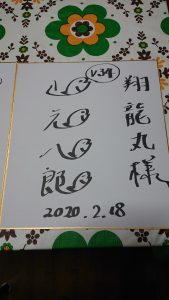 翔龍丸様
V.34
山元八郎
2020.2.18